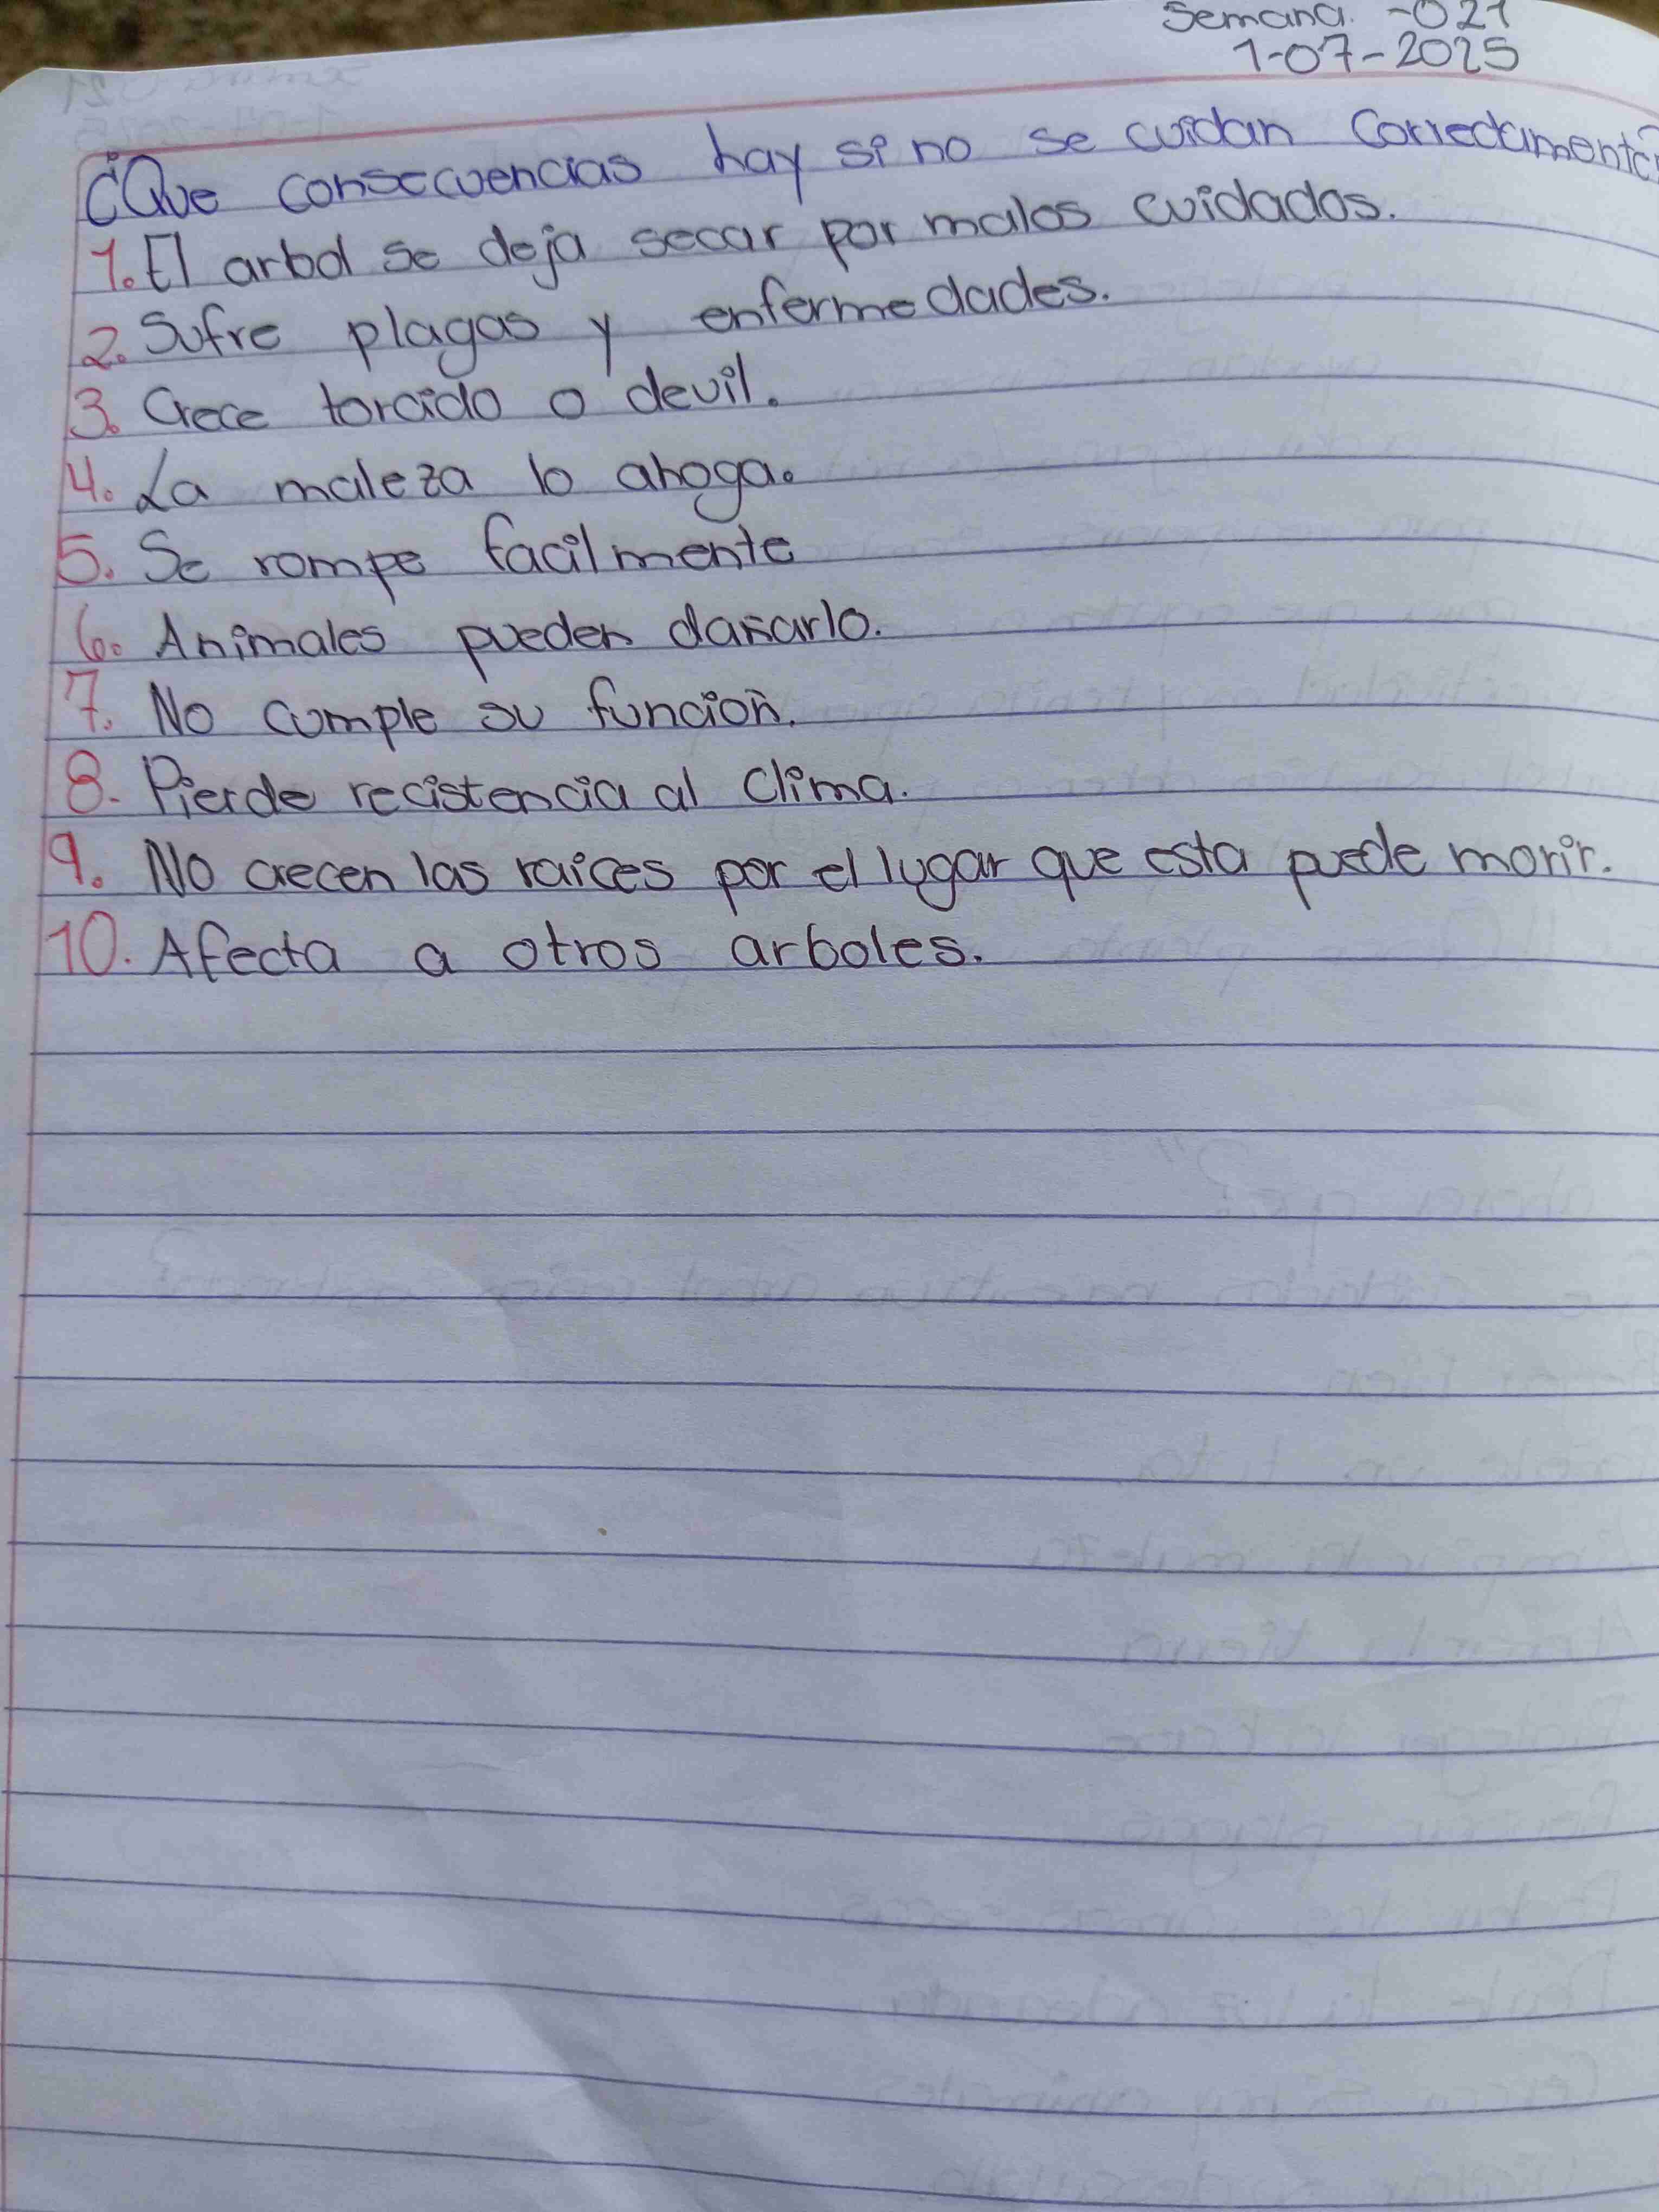 Semana. -021
1-07-2025
¿Que consecuencias hay si no se cuidan correctamente?
1. El arbol se deja secar por malos cuidados.
2. Sufre plagas y enfermedades.
3. Crece torcido o devil.
4. La maleza lo ahoga.
5. Se rompe facilmente
6. Animales pueden dañarlo.
7. No cumple su función.
8. Pierde recistencia al clima.
9. No crecen las raices por el lugar que esta puede morir.
10. Afecta a otros arboles.